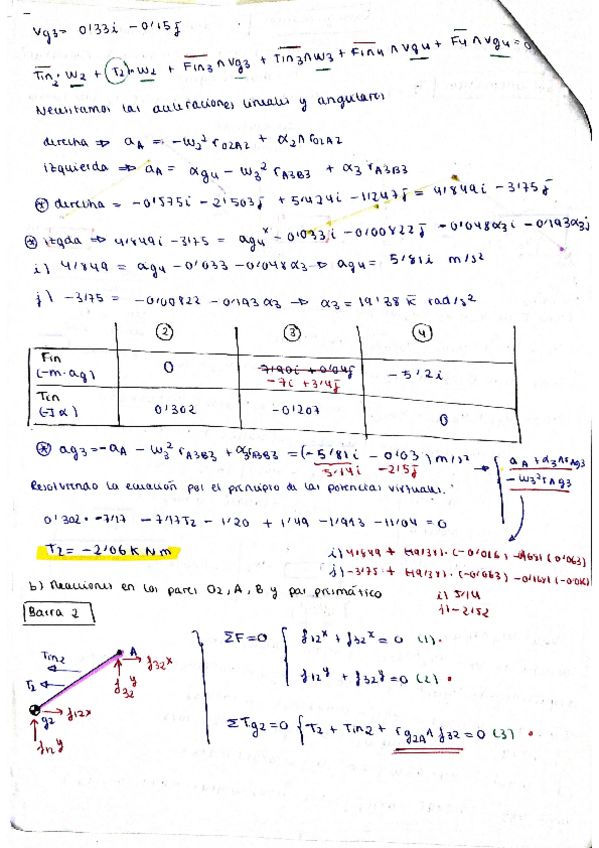 Vg3 = 0'33i - 0'15j
Tin2·w2 + T2·w2 + Fin3∧vg3 + Tin3∧w3 + Fin4∧vg4 + F4∧vg4 = 0
Necesitamos las aceleraciones lineales y angulares
derecha ⇒ aA = -w2² rO2A2 + α2∧rO2A2
izquierda ⇒ aA = αg4 - w3² rA3B3 + α3 rA3B3
⊛ derecha = -0'575i - 2'503j + 5'424i - 1'1247j = 4'849i - 3'75j
⊛ izqda ⇒ 4'849i - 3'75 = ag4ˣ - 0'033i - 0'00822j - 0'048α3i - 0'193α3j
i) 4'849 = ag4 - 0'033 - 0'048α3 ⇒ ag4 = 5'81i m/s²
j) -3'75 = -0'00822 - 0'193α3 → α3 = 19'38 k rad/s²
② ③ ④
Fin (-m·ag) 0 7'20i + 0'04j -7i + 3'4j -5'2i
Tin (-Jα) 0'302 -0'207 0
⊛ ag3 = -aA - w3² rA3B3 + α3rA3B3 = (-5'81i - 0'03) m/s²
5'14i -2'5j
aA + α3∧rAg3
- w3² rAg3
Resolviendo la ecuación por el principio de las potencias virtuales.
0'302·-7'17 - 7'17T2 - 1'20 + 1'49 - 1'993 - 11'04 = 0
T2 = -2'06 K Nm
i) 5'14
j) -2'52
b) Reacciones en los pares O2, A, B y par prismático
Barra 2
Tin2
T2
A
f32x
f32y
g2
f12x
f12y
ΣF=0 { f12x + f32x = 0 (1).
f12y + f32y = 0 (2).
ΣTg2=0 { T2 + Tin2 + rg2A∧f32 = 0 (3)